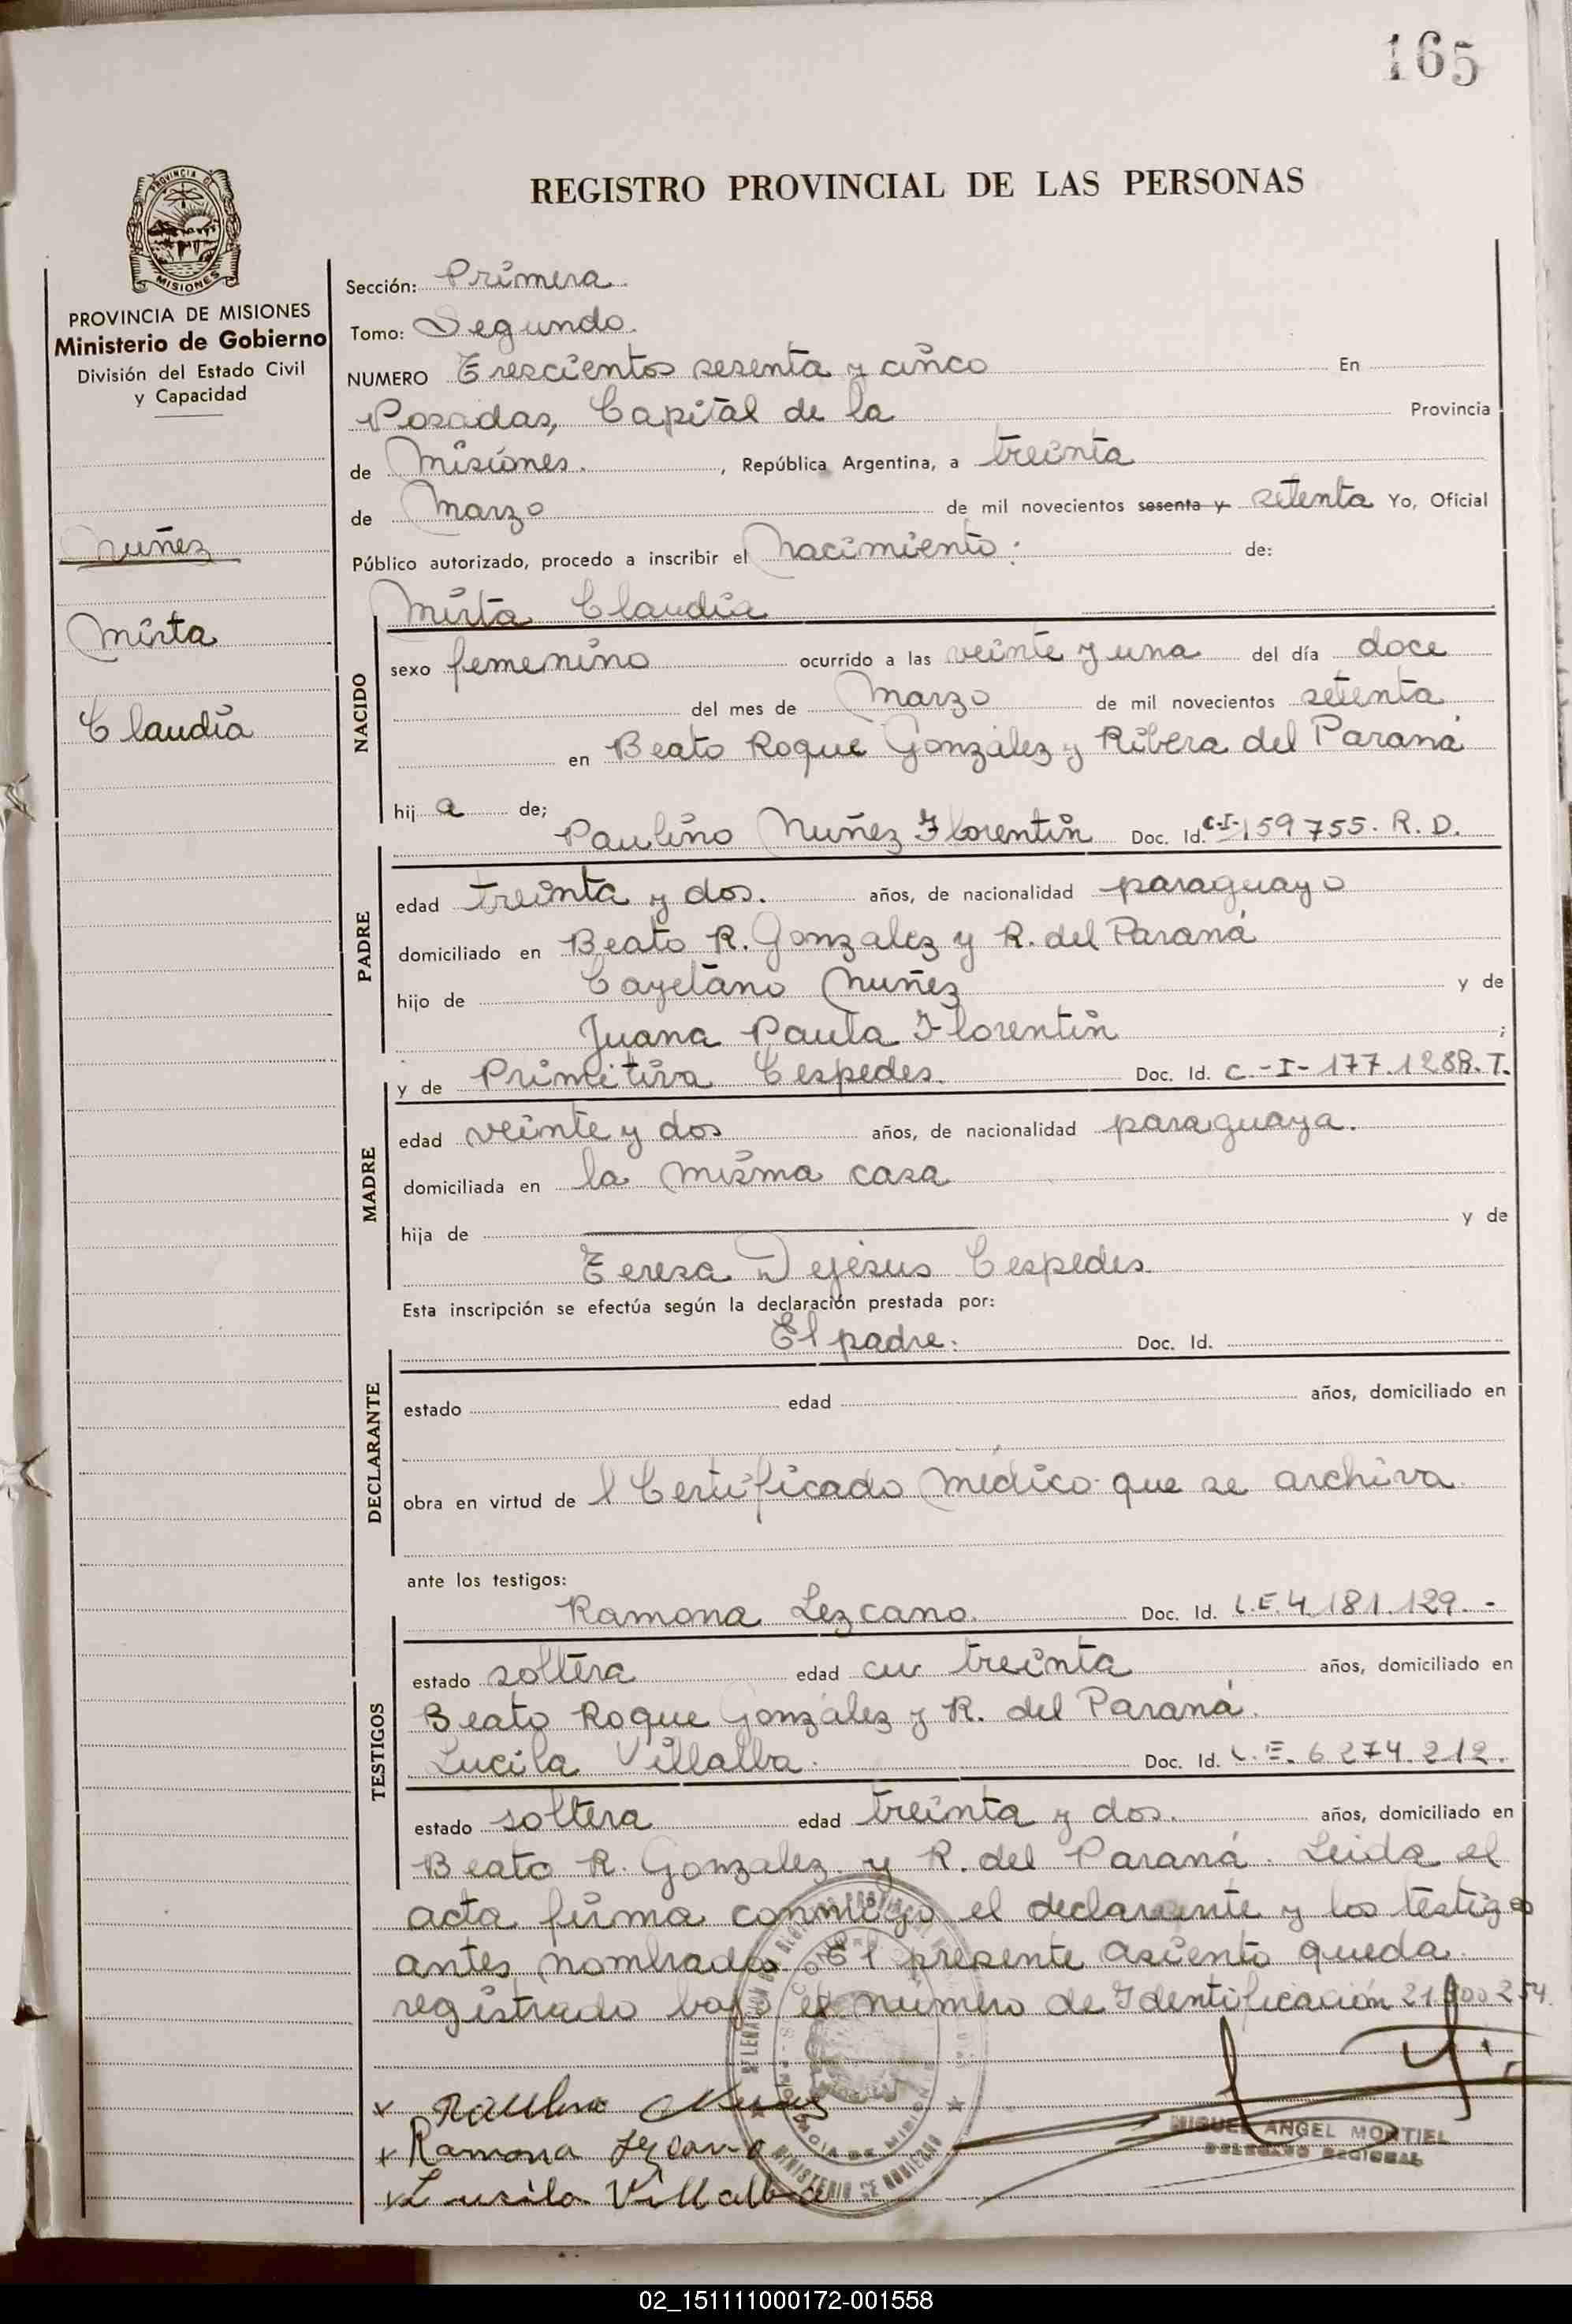 165
REGISTRO PROVINCIAL DE LAS PERSONAS
PROVINCIA DE
MISIONES
PROVINCIA DE MISIONES
Ministerio de Gobierno
División del Estado Civil
y Capacidad
Nuñez
Mirta
Claudia
Sección: Primera
Tomo: Segundo.
NUMERO Trescientos sesenta y cinco En
Posadas, Capital de la Provincia
de Misiones. , República Argentina, a treinta
de Marzo de mil novecientos sesenta y setenta Yo, Oficial
Público autorizado, procedo a inscribir el Nacimiento: de:
Mirta Claudia
NACIDO
sexo femenino ocurrido a las veinte y una del día doce
del mes de Marzo de mil novecientos setenta
en Beato Roque González y Ribera del Paraná
hij a de;
Paulino Nuñez Florentin Doc. Id. C-I-159755. R. D.
PADRE
edad treinta y dos. años, de nacionalidad paraguayo
domiciliado en Beato R. Gonzalez y R. del Paraná
hijo de Cayetano Nuñez y de
Juana Paula Florentin ;
y de Primitiva Cespedes. Doc. Id. C.-I-177.128R.T.
MADRE
edad veinte y dos años, de nacionalidad paraguaya.
domiciliada en la misma casa
hija de y de
Teresa Dejesus Cespedes
Esta inscripción se efectúa según la declaración prestada por:
El padre: Doc. Id.
DECLARANTE
estado edad años, domiciliado en
obra en virtud de l Certificado Médico que se archiva
ante los testigos:
Ramona Lezcano. Doc. Id. L.E. 4.181.129.-
TESTIGOS
estado soltera edad treinta años, domiciliado en
Beato Roque González y R. del Paraná.
Lucila Villalba. Doc. Id. L.E. 6.274.212.
estado soltera edad treinta y dos. años, domiciliado en
Beato R. Gonzalez y R. del Paraná. Leida el
acta firma conmigo el declarante y los testigos
antes nombrados. El presente asiento queda
registrado bajo el número de Identificación
x Paulino Nuñez
x Ramona Lezcano
x Lucila Villalba
MINISTERIO DE GOBIERNO
MIGUEL ANGEL MONTIEL
DELEGADO REGIONAL
02_151111000172-001558